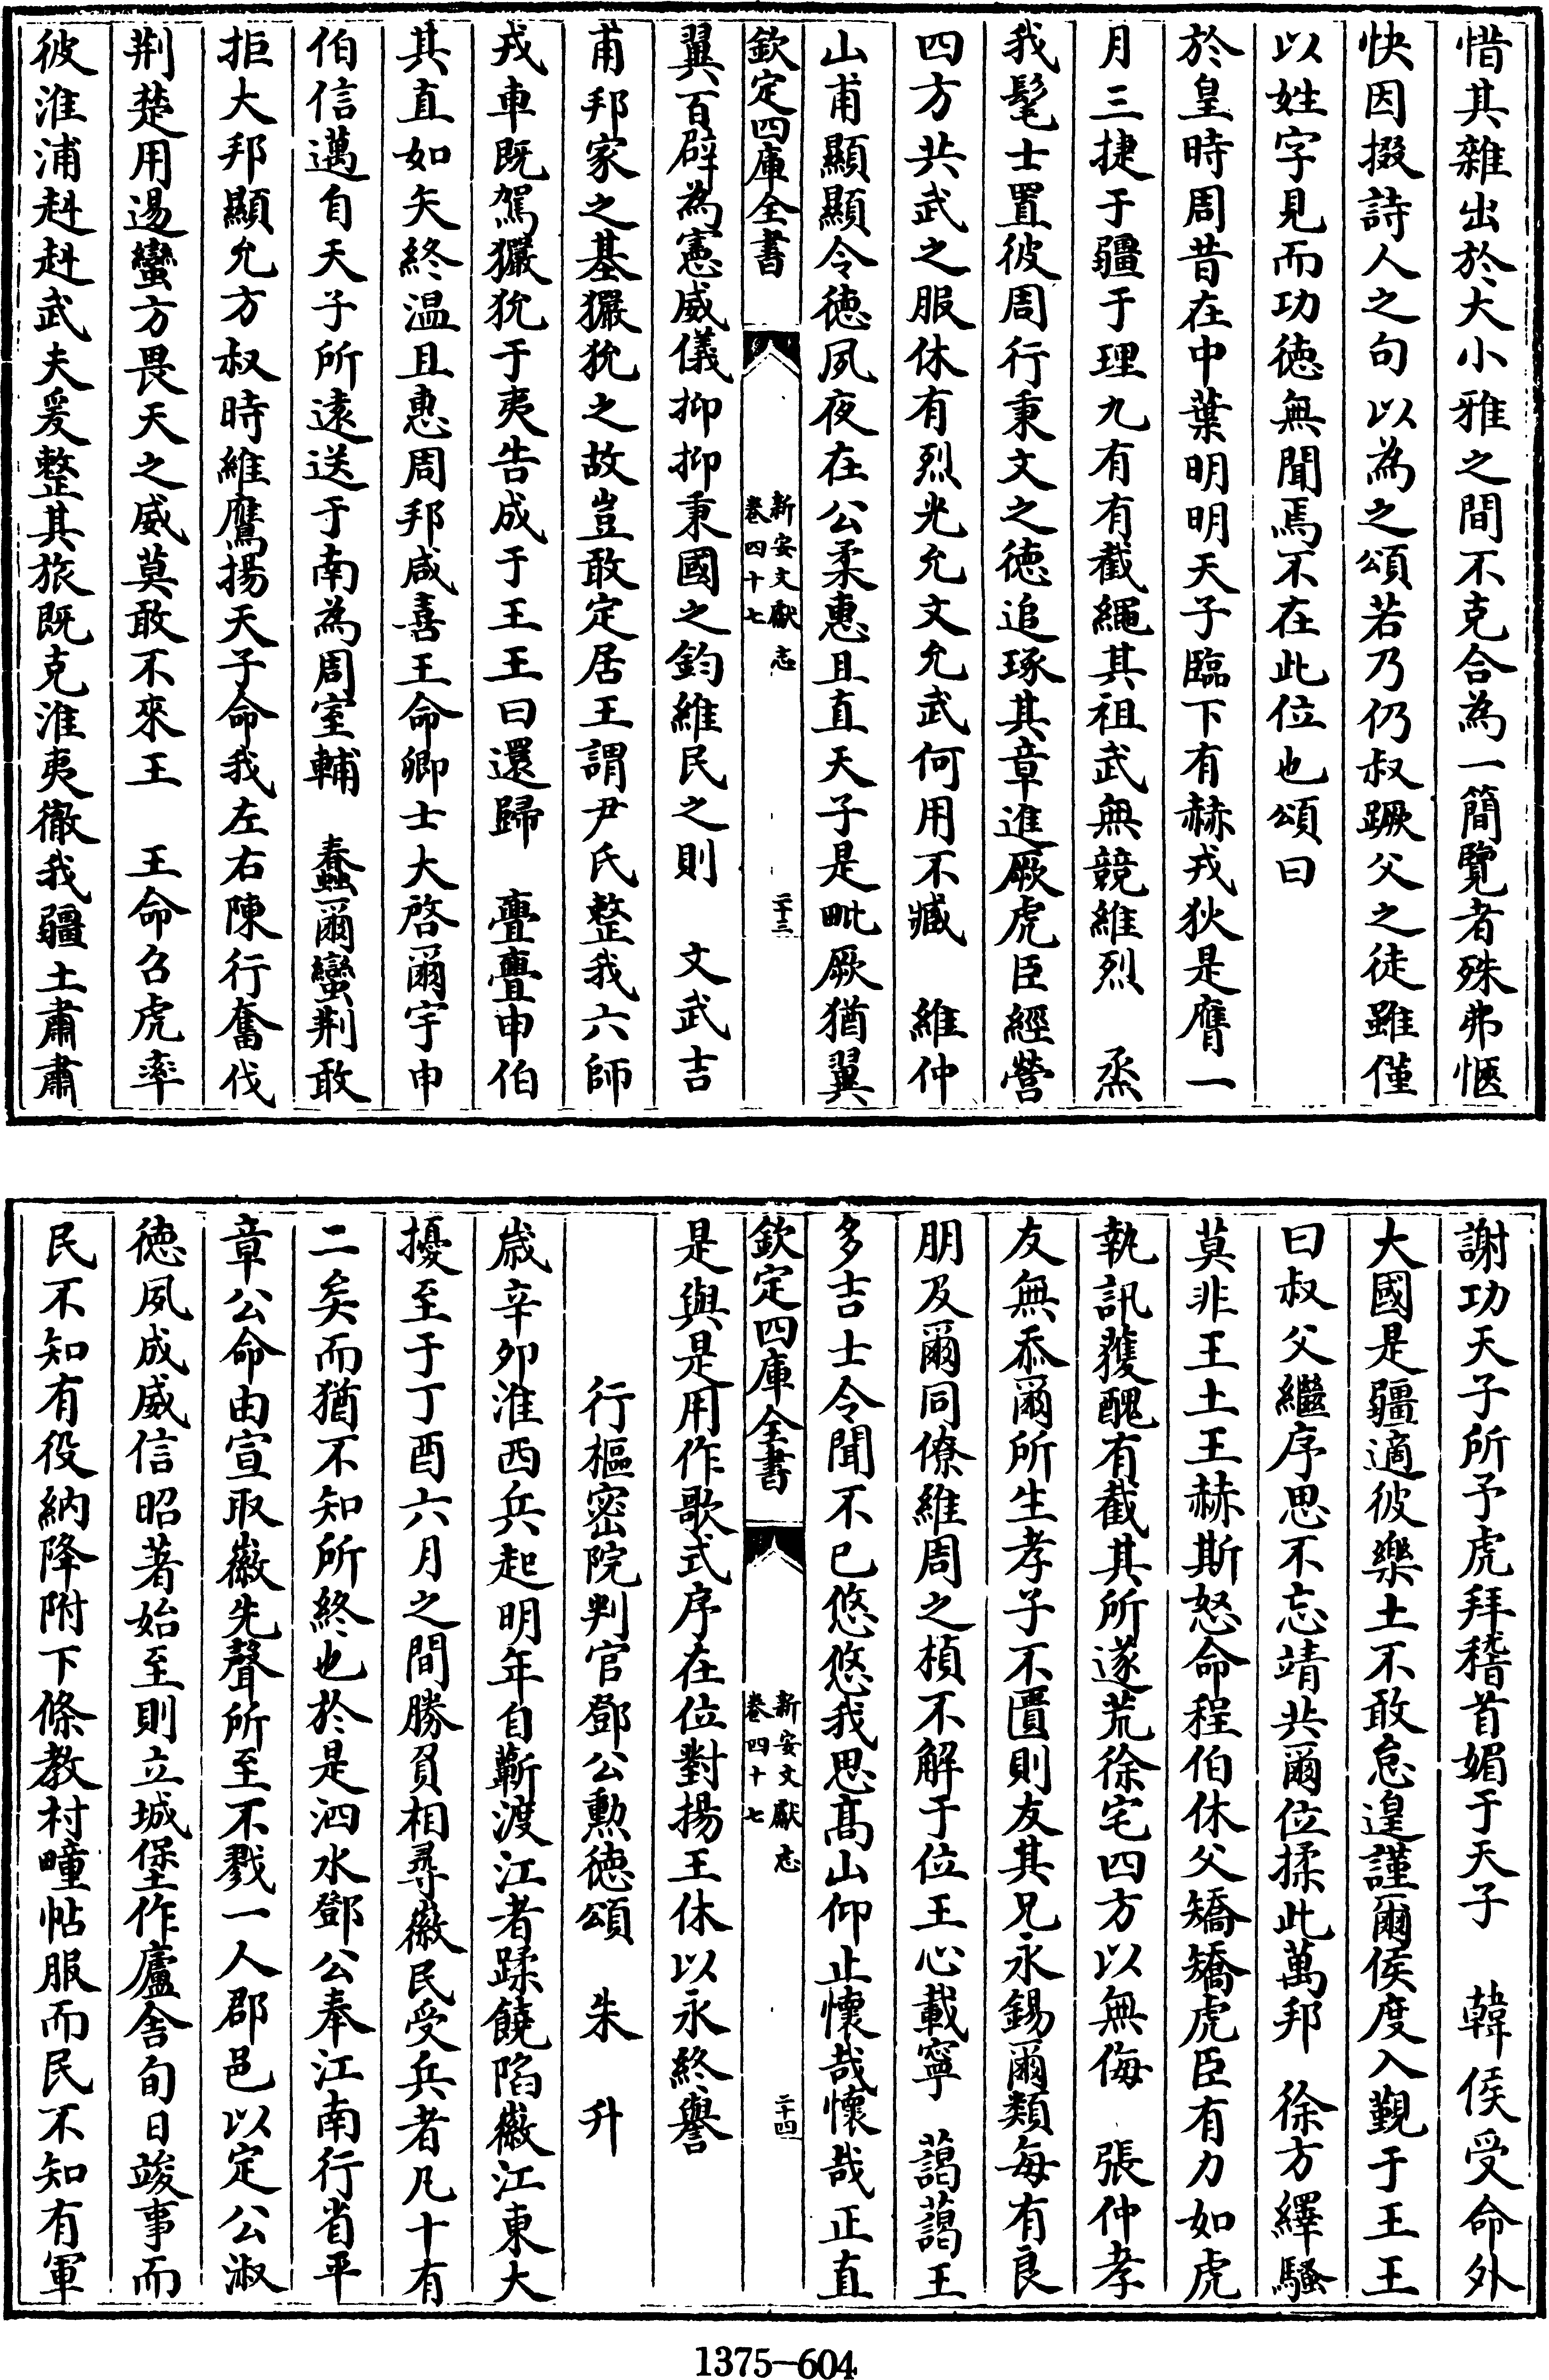 惜其雜出於大小雅之間不克合為一簡覽者殊弗愜
快因掇詩人之句以為之頌若乃仍叔蹶父之徒雖僅
以姓字見而功徳無聞焉不在此位也頌曰
於皇時周昔在中葉明明天子臨下有赫戎狄是膺一
月三捷于疆于理九有有截繩其祖武無競維烈　烝
我髦士置彼周行秉文之徳追琢其章進厥虎臣經營
四方共武之服休有烈光允文允武何用不臧　維仲
山甫顯顯令徳夙夜在公柔惠且直天子是毗厥猶翼
欽定四庫全書
新安文獻志
卷四十七
二十三
翼百辟為憲威儀抑抑秉國之鈞維民之則　文武吉
甫邦家之基玁狁之故豈敢定居王謂尹氏整我六師
戎車既駕玁狁于夷告成于王王曰還歸　亹亹申伯
其直如矢終温且惠周邦咸喜王命卿士大啓爾宇申
伯信邁自天子所逺送于南為周室輔　蠢爾蠻荆敢
拒大邦顯允方叔時維鷹揚天子命我左右陳行奮伐
荆楚用逷蠻方畏天之威莫敢不來王　王命召虎率
彼淮浦赳赳武夫爰整其旅既克淮夷徹我疆土肅肅
謝功天子所予虎拜稽首媚于天子　韓侯受命外
大國是疆適彼樂土不敢怠遑謹爾侯度入覲于王王
曰叔父繼序思不忘靖共爾位揉此萬邦　徐方繹騷
莫非王土王赫斯怒命程伯休父矯矯虎臣有力如虎
執訊獲醜有截其所遂荒徐宅四方以無侮　張仲孝
友無忝爾所生孝子不匱則友其兄永錫爾類毎有良
朋及爾同僚維周之楨不解于位王心載寧　藹藹王
多吉士令聞不已悠悠我思髙山仰止懷哉懷哉正直
欽定四庫全書
新安文獻志
卷四十七
二十四
是與是用作歌式序在位對揚王休以永終譽
行樞密院判官鄧公勲徳頌　朱　升
歳辛夘淮西兵起明年自蘄渡江者蹂饒陷徽江東大
擾至于丁酉六月之間勝負相尋徽民受兵者凡十有
二矣而猶不知所終也於是泗水鄧公奉江南行省平
章公命由宣取徽先聲所至不戮一人郡邑以定公淑
徳夙成威信昭著始至則立城堡作廬舍旬日竣事而
民不知有役納降附下條教村疃帖服而民不知有軍
1375—604